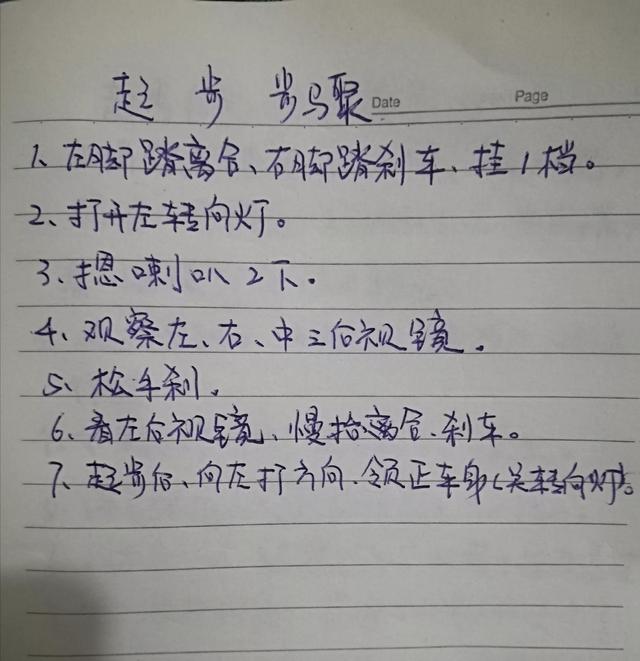 起步 步骤
Date Page
1、左脚踏离合、右脚踏刹车、挂1档。
2、打开左转向灯。
3、摁喇叭2下。
4、观察左、右、中三后视镜。
5、松手刹。
6、看左后视镜、慢抬离合、刹车。
7、起步后、向左打方向、领正车身(关转向灯)。